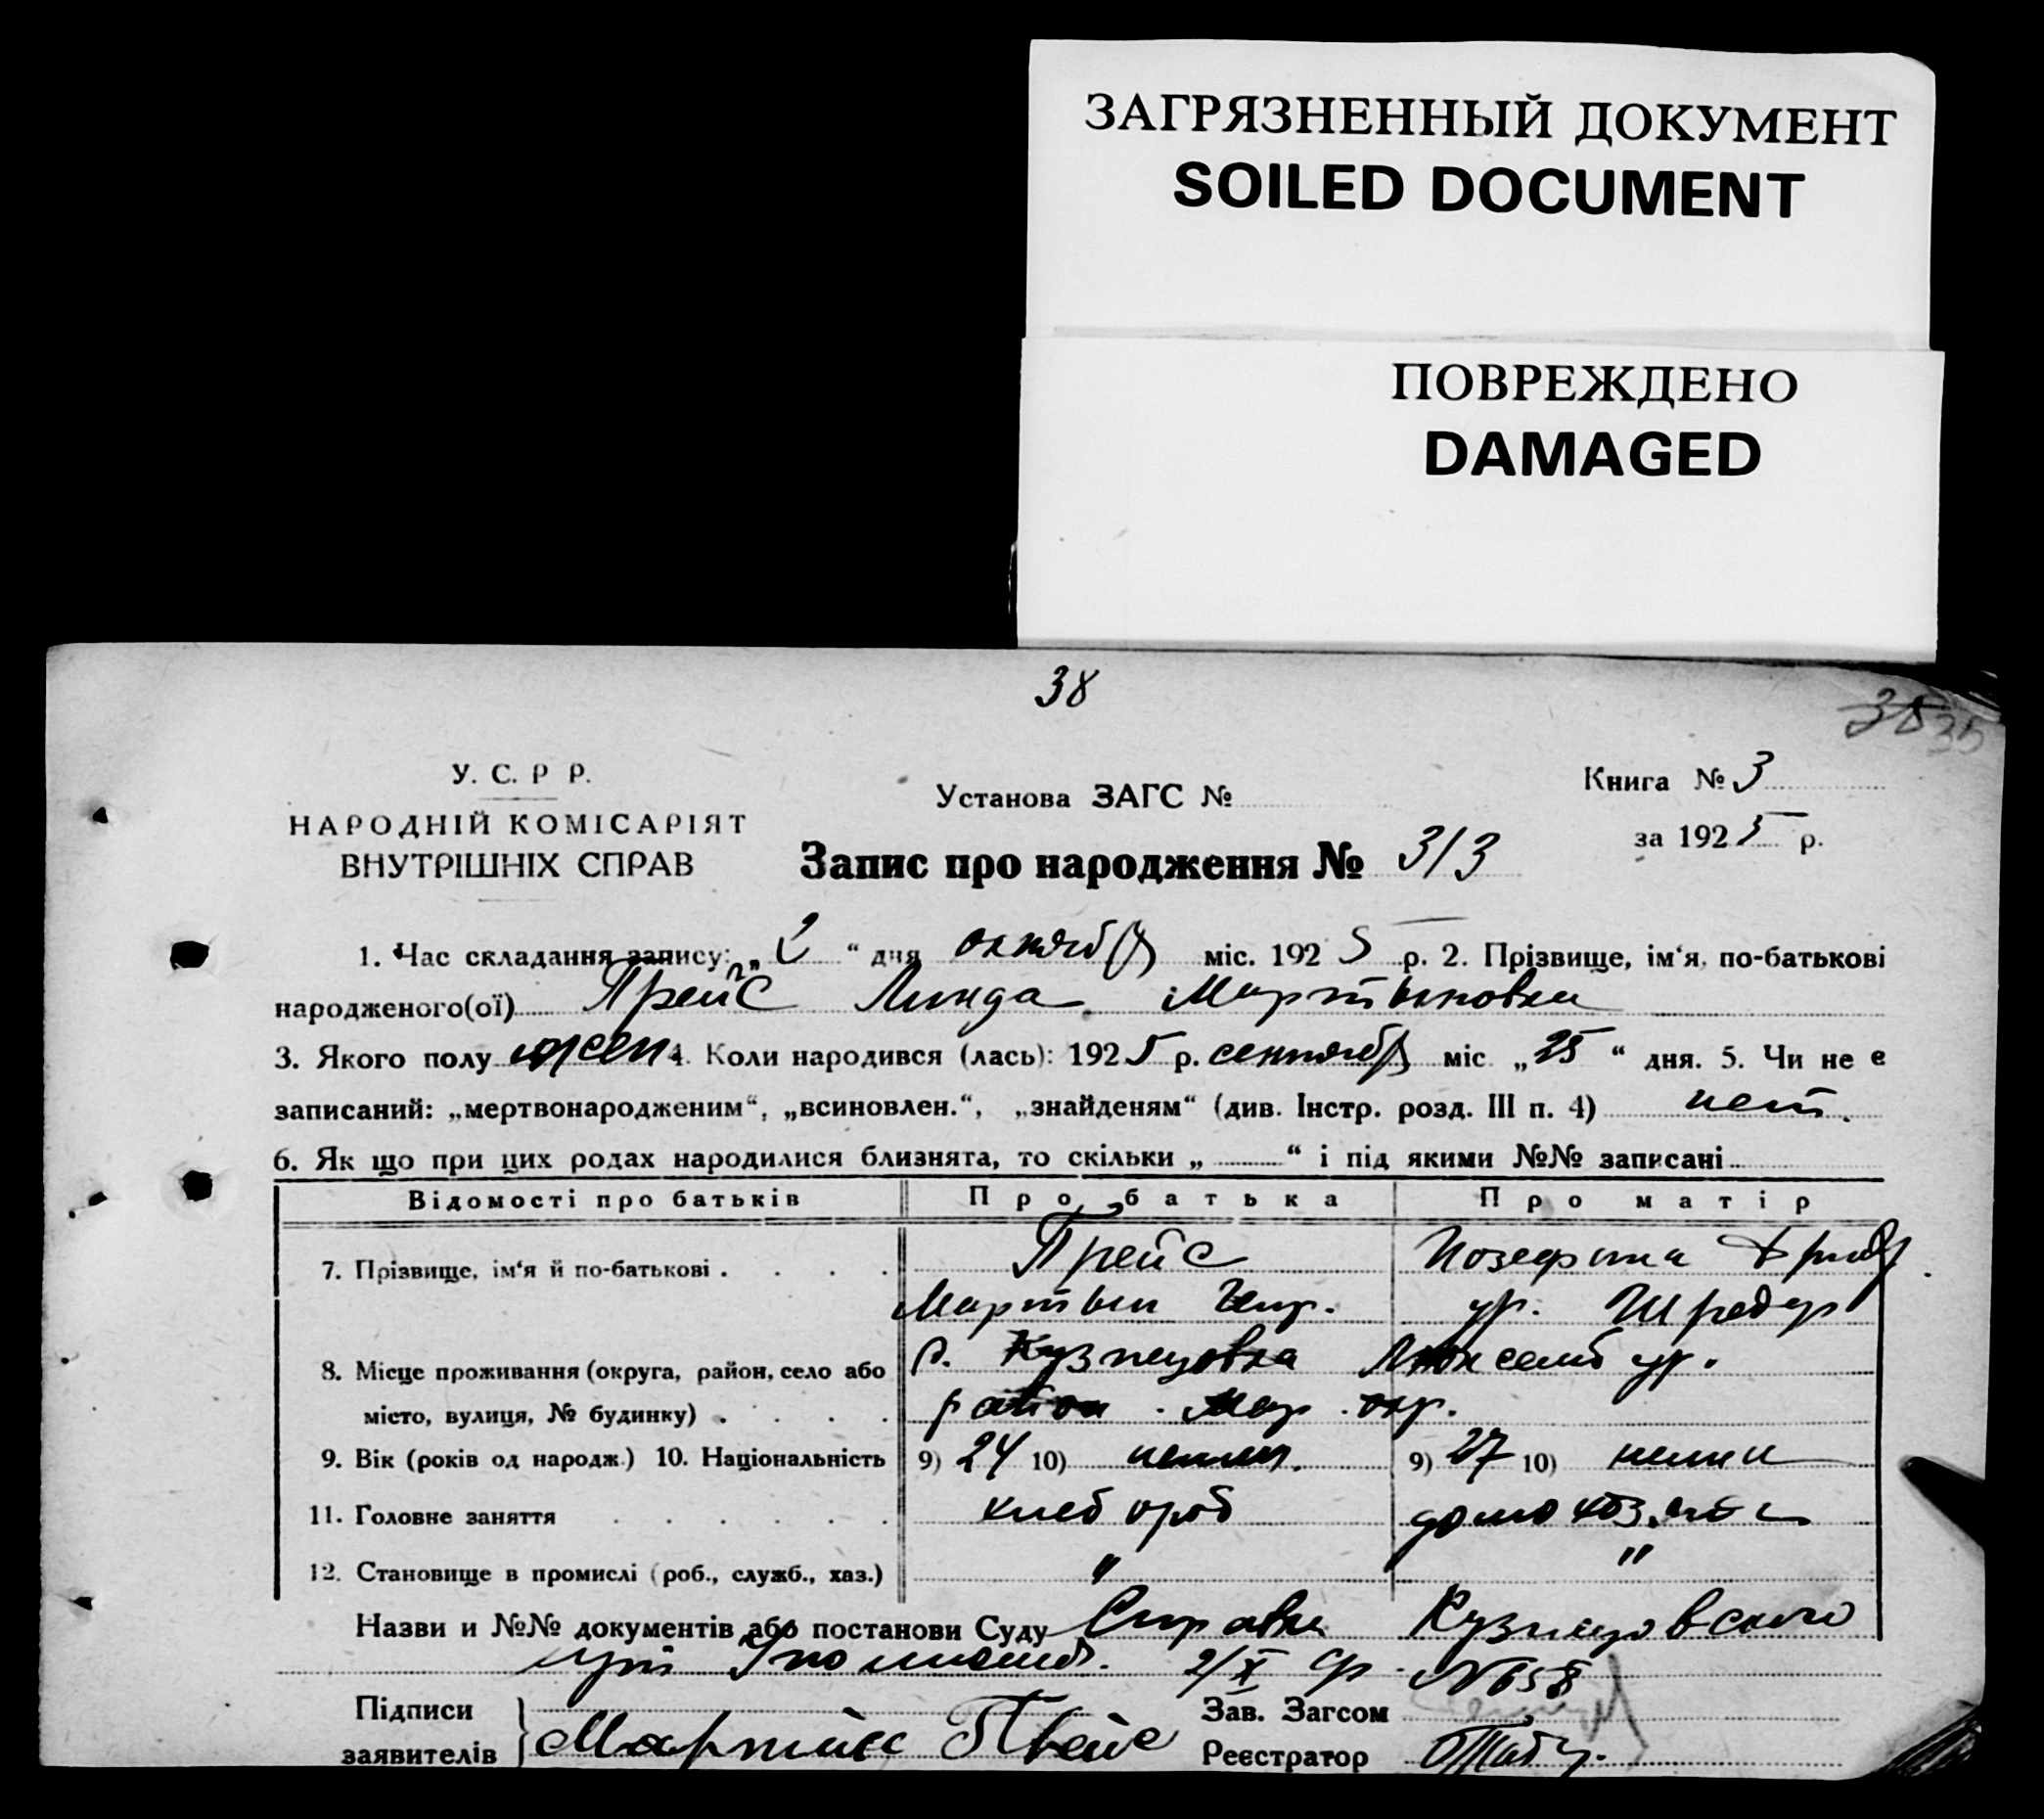 ЗАГРЯЗНЕННЫЙ ДОКУМЕНТ
SOILED DOCUMENT
ПОВРЕЖДЕНО
DAMAGED
38
38 35
У. С. Р Р.
НАРОДНІЙ КОМІСАРІЯТ
ВНУТРІШНІХ СПРАВ
Установа ЗАГС №
Книга № 3
за 1925 р.
Запис про народження № 313
1. Час складання запису: „2“ дня октября міс. 1925 р. 2. Прізвище, ім‘я, по-батькові
народженого(ої) Прейс Линда Мартыновна
3. Якого полу жен 4. Коли народився (лась): 1925 р. сентября міс „25“ дня. 5. Чи не є
записаний: „мертвонародженим“, „всиновлен.“, „знайденям“ (див. Інстр. розд. III п. 4) нет.
6. Як що при цих родах народилися близнята, то скільки „ “ і під якими №№ записані
Відомості про батьків Про батька Про матір
7. Прізвище, ім‘я й по-батькові . . . . Прейс Йозефина
Мартын ур. Шредер
8. Місце проживання (округа, район, село або с. Кузнецовка
місто, вулиця, № будинку) . . . . район. Мар. окр.
9. Вік (років од народж.) 10. Національність 9) 24 10) немец. 9) 27 10) немк
11. Головне заняття . . . . . хлебороб
12. Становище в промислі (роб., служб., хаз.) " "
Назви и №№ документів або постанови Суду Справка Кузнецовского
2/X № 658
Підписи Зав. Загсом
заявителів Мартин Прейс Реєстратор